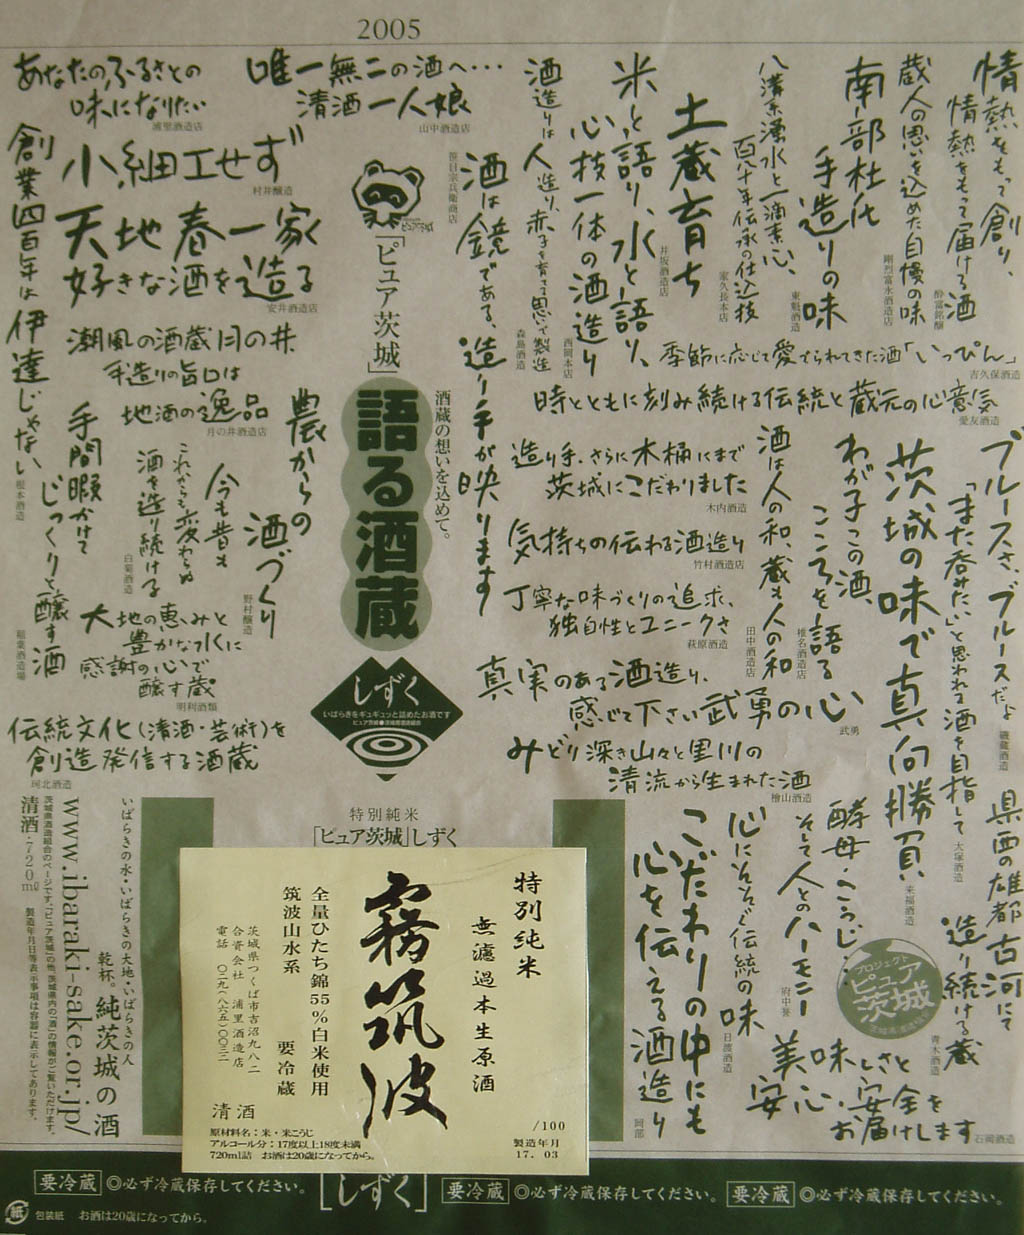 2005
情熱をもって創り、
情熱をもって届ける酒
酔富銘醸
蔵人の思いを込めた自慢の味
剛烈富永酒造店
南部杜氏
手造りの味
東魁酒造
八溝系湧水と一滴素心、
百八十年伝承の仕込技
家久長本店
土蔵育ち
井坂酒造店
米と語り、水と語り、
心技一体の酒造り
西岡本店
酒造りは人造り、赤子を育てる思いで製造
森島酒造
唯一無二の酒へ…
清酒一人娘
山中酒造店
あなたのふるさとの
味になりたい
浦里酒造店
小細工せず
村井醸造
天地春一家
好きな酒を造る
安井酒造店
創業四百年は伊達じゃない
根本酒造
酒は鏡である、造り手が映ります
笹目宗兵衛商店
ピュア茨城
「ピュア茨城」
酒蔵の想いを込めて。
語る酒蔵
しずく
いばらきをギュギュッと詰めたお酒です
季節に応じて愛でられてきた酒「いっぴん」
吉久保酒造
時とともに刻み続ける伝統と蔵元の心意気
愛友酒造
潮風の酒蔵月の井
手造りの旨口は
地酒の逸品
月の井酒造店
農からの
酒づくり
野村醸造
今も昔も
これからも変わらぬ
酒を造り続ける
白菊酒造
手間暇かけて
じっくりと醸す酒
稲葉酒造場
大地の恵みと
豊かな水に
感謝の心で
醸す蔵
明利酒類
伝統文化(清酒・芸術)を
創造発信する酒蔵
珂北酒造
造り手、さらに木桶にまで
茨城にこだわりました
木内酒造
気持ちの伝わる酒造り
竹村酒造店
丁寧な味づくりの追求、
独自性とユニークさ
萩原酒造
真実のある酒造り、
感じて下さい武勇の心
武勇
みどり深き山々と里川の
清流から生まれた酒
檜山酒造
ブルースさ、ブルースだよ
磯蔵酒造
「また呑みたい」と思われる酒を目指して
大塚酒造
茨城の味で真向勝負
来福酒造
わが子この酒、
こころを語る
椎名酒造店
酒は人の和、蔵も人の和
田中酒造店
県西の雄都古河にて
造り続ける蔵
青木酒造
酵母・こうじ…
そして人とのハーモニー
府中誉
心にそそぐ伝統の味
日渡酒造
こだわりの中にも
心を伝える酒造り
岡部
プロジェクト
ピュア
茨城
美味しさと
安心・安全を
お届けします
石岡酒造
いばらきの水・いばらきの大地・いばらきの人
乾杯。純茨城の酒
www.ibaraki-sake.or.jp/
茨城県酒造組合のページです。「ピュア茨城」の他、茨城県内の「酒」の情報がご覧いただけます。
清酒・720ml
製造年月日等表示事項は容器に表示してあります。
特別純米
「ピュア茨城」しずく
特別純米
無濾過本生原酒
霧筑波
全量ひたち錦55%白米使用
筑波山水系 要冷蔵
茨城県つくば市吉沼九八二
合資会社 浦里酒造店
電話 〇二九‐八六五‐〇〇三二
清酒
原材料名:米・米こうじ
アルコール分:17度以上18度未満
720ml詰 お酒は20歳になってから。
/100
製造年月
17.03
要冷蔵 ◎必ず冷蔵保存してください。
[しずく]
要冷蔵 ◎必ず冷蔵保存してください。
要冷蔵 ◎必ず冷蔵保存してください。
紙 包装紙 お酒は20歳になってから。